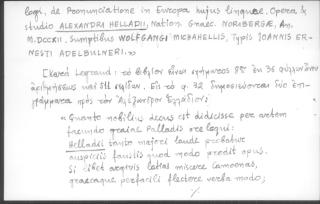 logi, de Pronunciatione in Europa hujus linguae. Opera &
studio ALEXANDRI HELLADII, Nation. Graec. NORIBERGAE, An.
M.DCCXII. Sumptibus WOLFGANGI MICHAHELLIS, Typis JOANNIS ER-
NESTI ADELBULNERI.»
[Κατὰ Legrand: τὸ βιβλίον εἶναι σχήματος 8ον ἐκ 36 φύλλων ἄνευ
ἀριθμήσεως καὶ 311 σελίδων. Εἰς τὸ φ. 32 δημοσιεύονται δύο ἐπι-
γράμματα πρὸς τὸν Ἀλέξανδρον Ἑλλάδιον:
«Quanto nobilius decus est didicisse per artem
facundo graiae Palladis ore loqui:
Helladii tanto majori laude probatur
auspiciis faustis quod modo prodit opus.
Si libet argivis latias miscere Camoenas,
graecaque perfacili flectere verba modo;